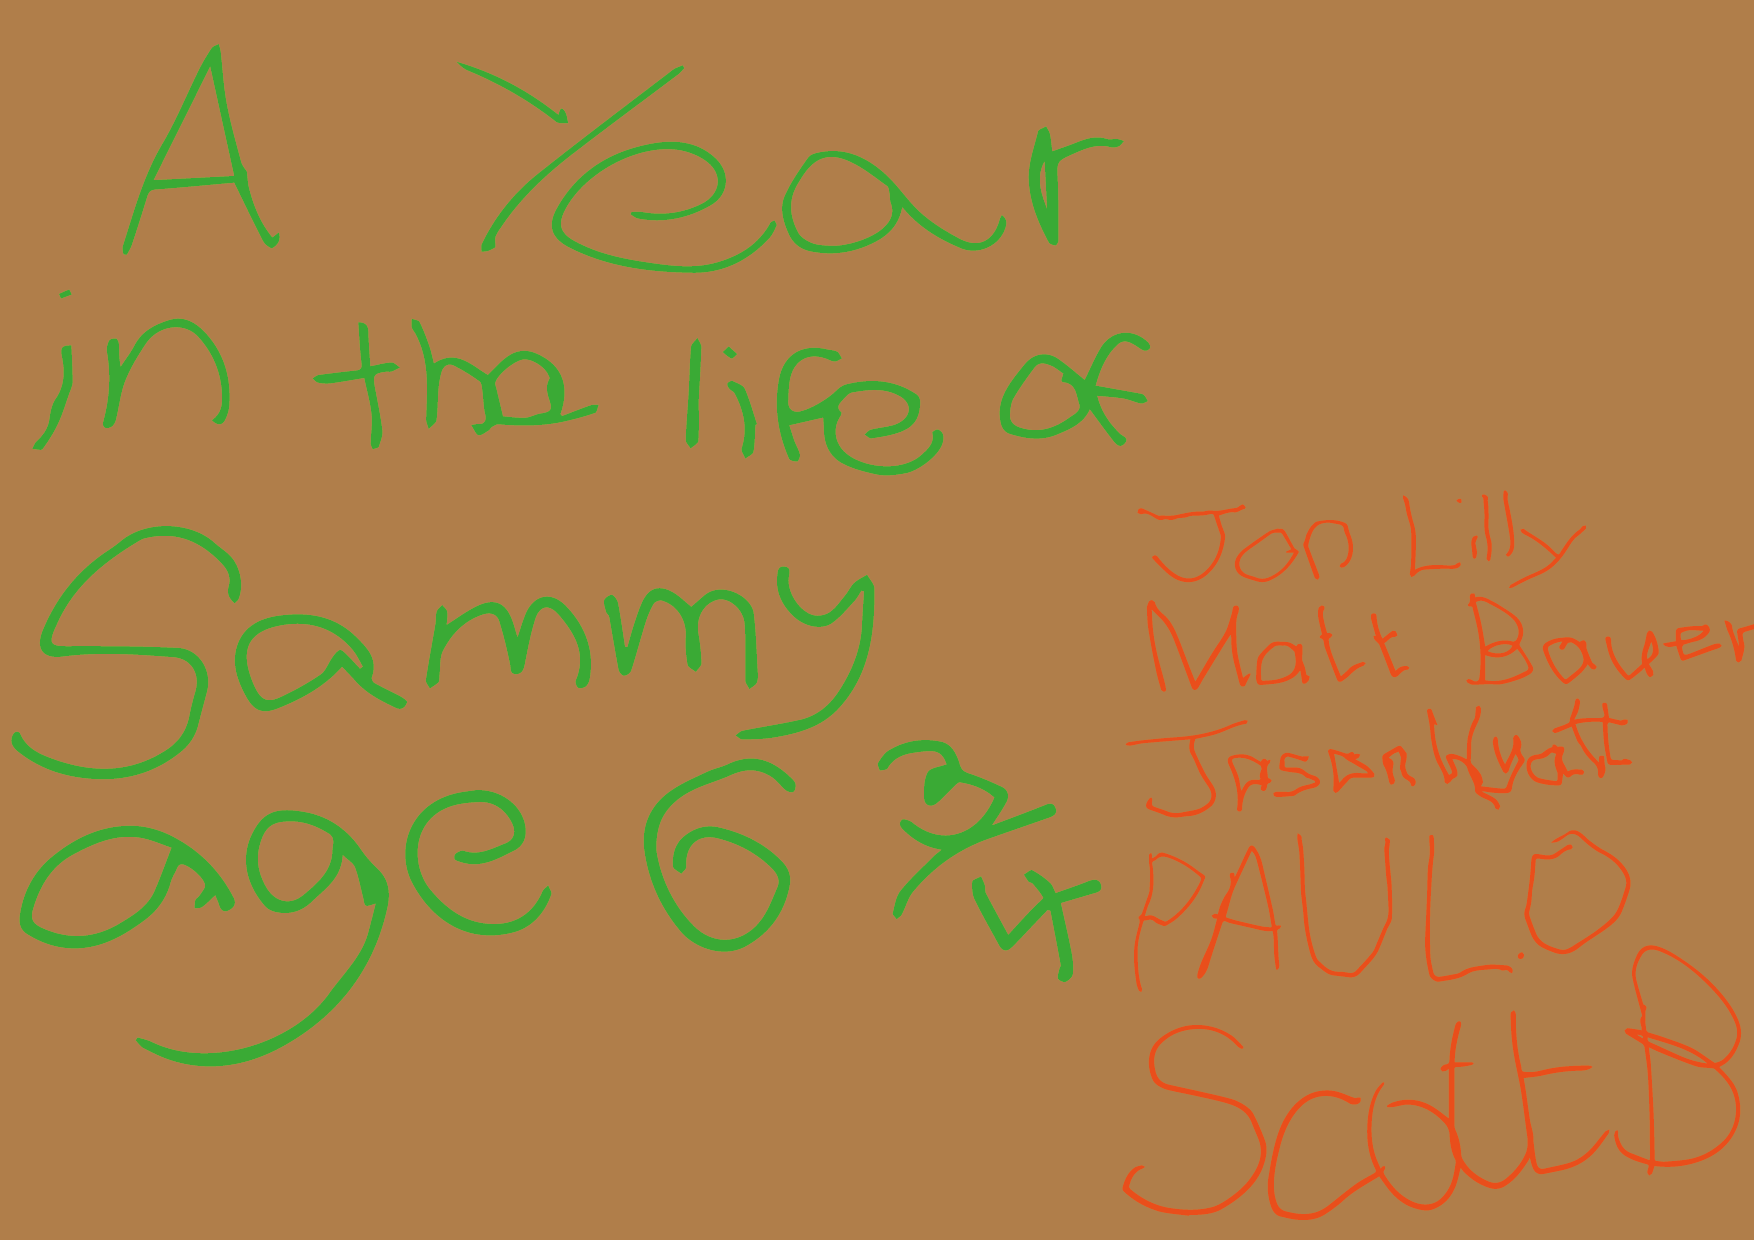 A Year
in the life of
Sammy
age 6 3/4
Jon Lilly
Matt Bauer
Jason Wyatt
PAUL.O
Scott B